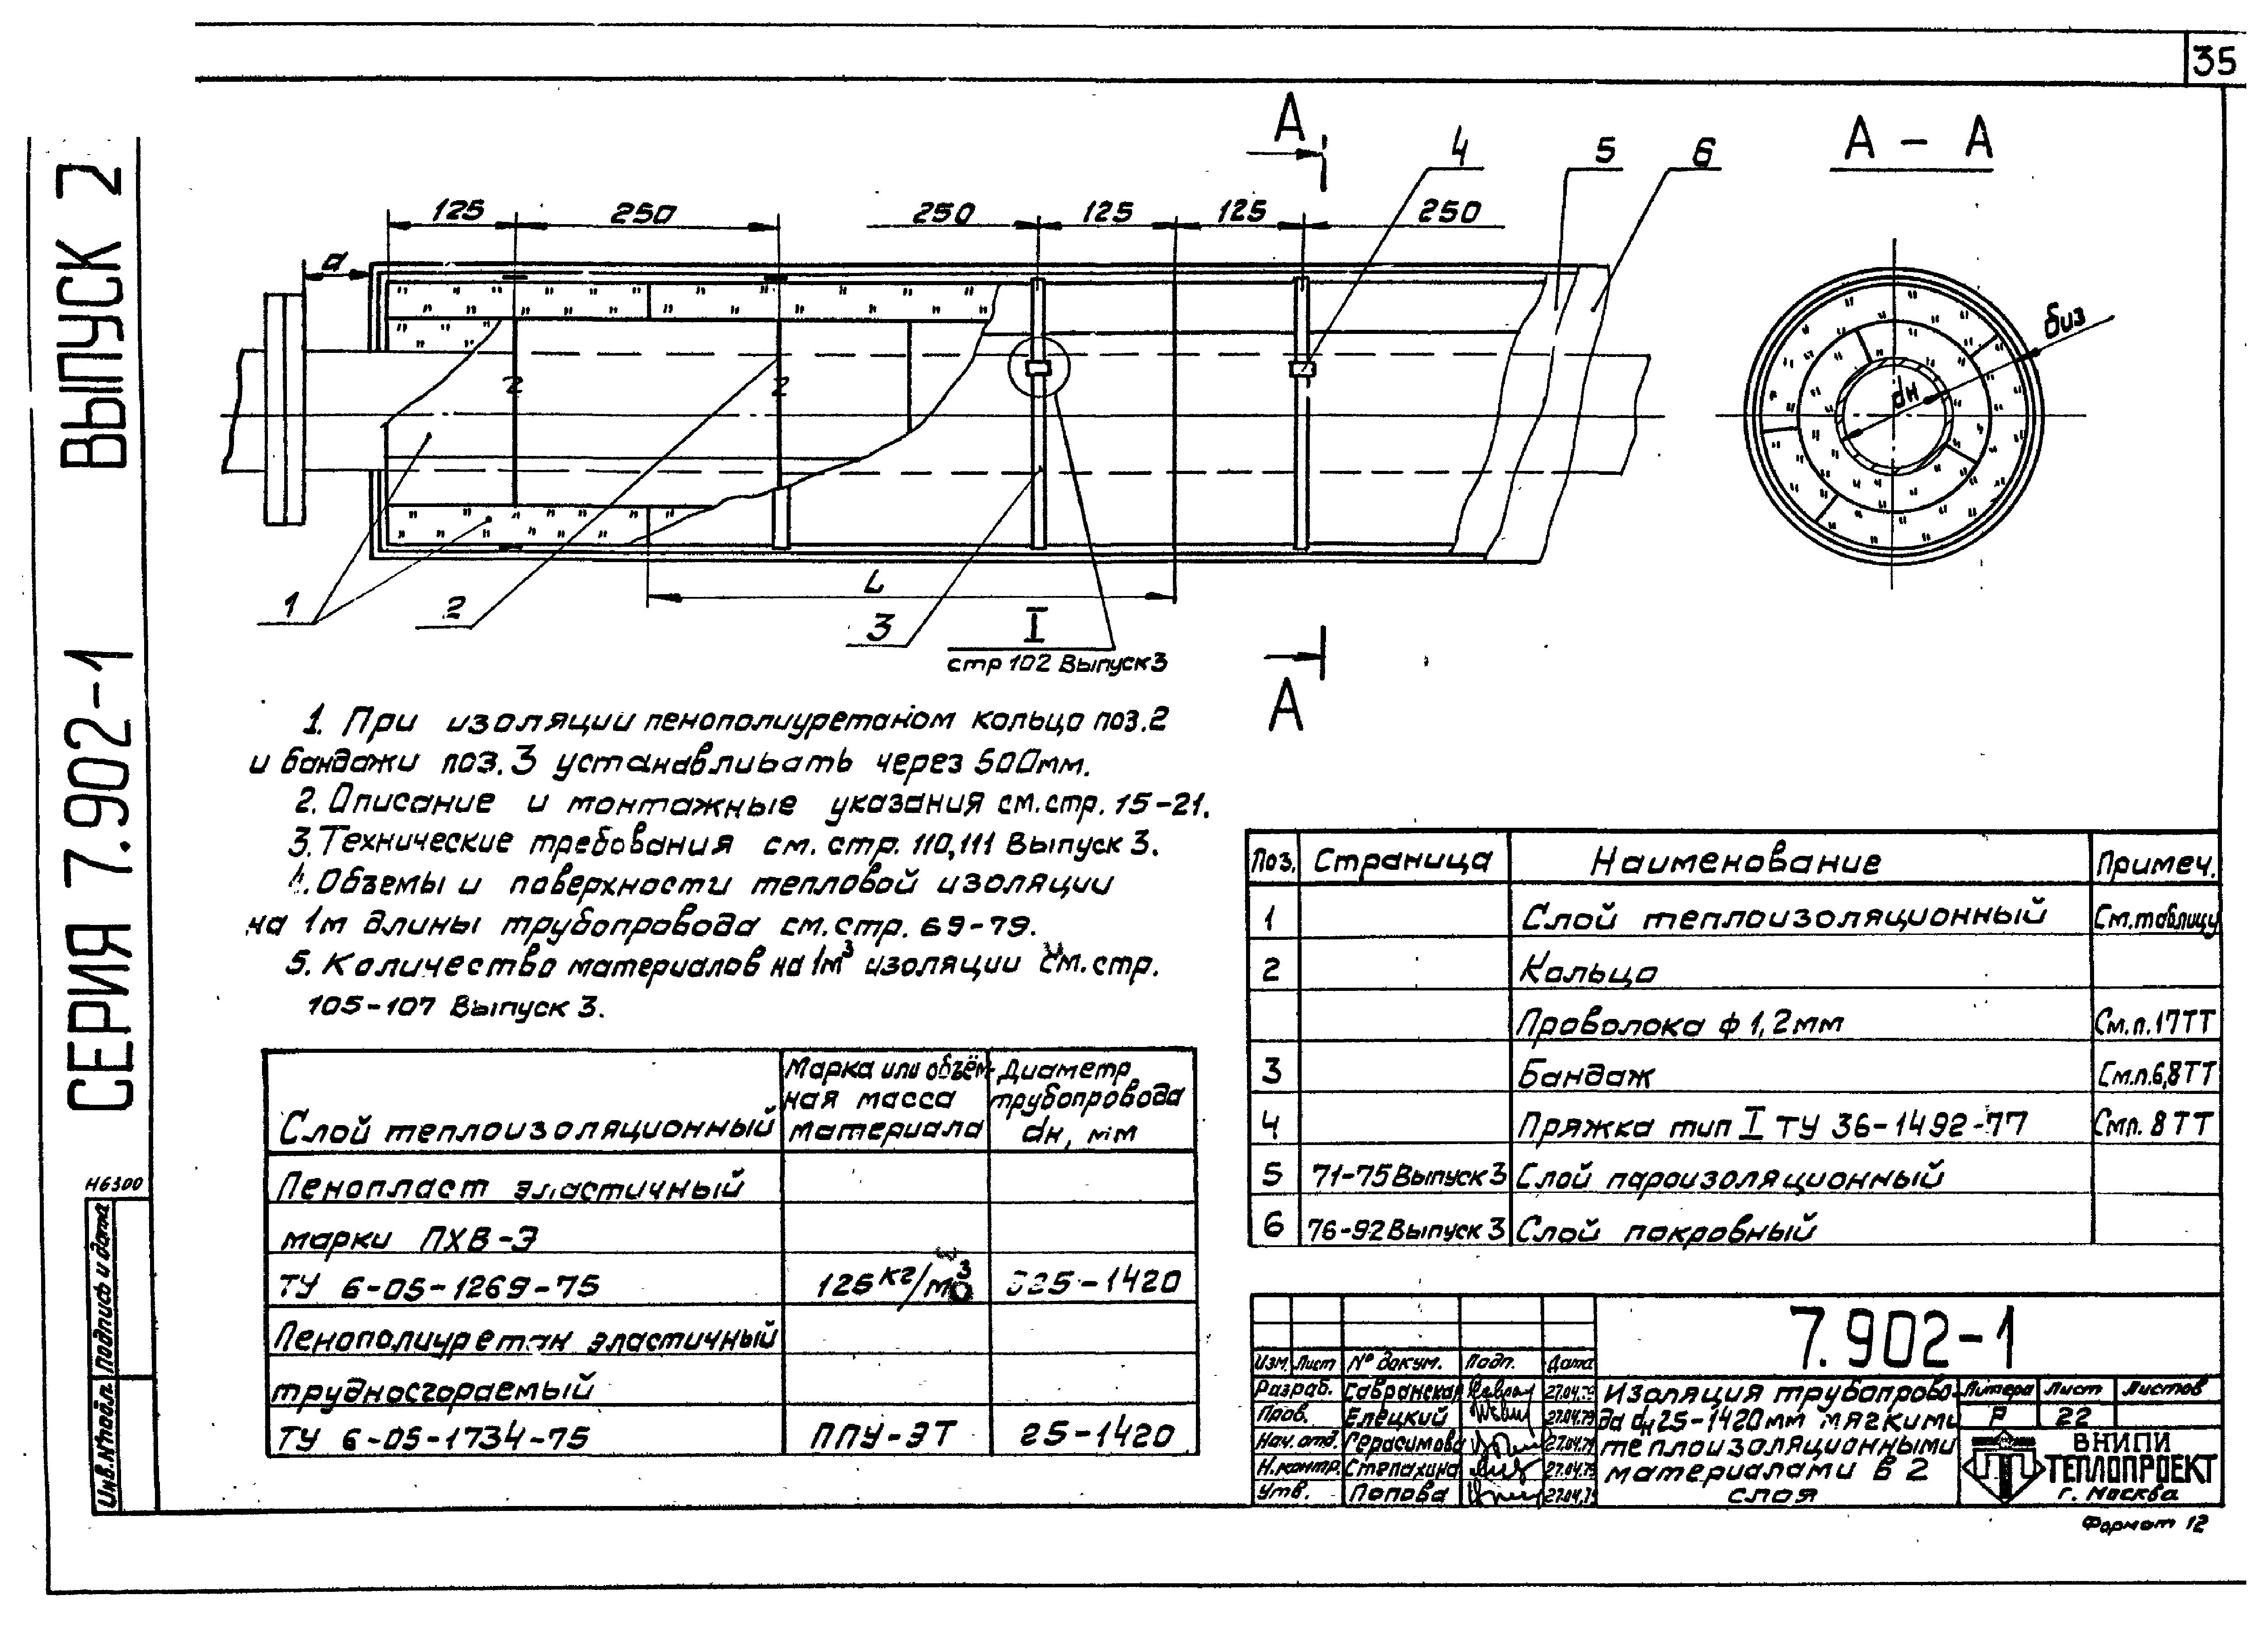 35
ВЫПУСК 2
СЕРИЯ 7.902-1
А
4
5
6
А - А
125
250
250
125
125
250
а
2
2
dн
δиз
L
1
2
3
I
стр 102 Выпуск 3
А
1. При изоляции пенополиуретаном кольца поз.2
и бандажи поз.3 устанавливать через 500мм.
2. Описание и монтажные указания см.стр. 15-21.
3. Технические требования см. стр. 110,111 Выпуск 3.
4. Объемы и поверхности тепловой изоляции
на 1м длины трубопровода см.стр. 69-79.
5. Количество материалов на 1м³ изоляции см.стр.
105-107 Выпуск 3.
Слой теплоизоляционный
Марка или объём-
ная масса
материала
Диаметр
трубопровода
dн, мм
Пенопласт эластичный
марки ПХВ-Э
ТУ 6-05-1269-75
125 кг/м³
-1420
Пенополиуретан эластичный
трудносгораемый
ТУ 6-05-1734-75
ППУ-ЭТ
25-1420
Поз. Страница Наименование Примеч.
1 Слой теплоизоляционный См.таблицу
2 Кольцо
Проволока ф 1,2мм См.п.17ТТ
3 Бандаж См.п.6,8ТТ
4 Пряжка тип I ТУ 36-1492-77 Смп. 8ТТ
5 71-75 Выпуск 3 Слой пароизоляционный
6 76-92 Выпуск 3 Слой покровный
7.902-1
Изм. Лист № докум. Подп. Дата
Разраб. Савранская 27.04.79
Пров. Елецкий 27.04.79
Нач. отд. Герасимова 27.04.79
Н.контр. Степахина 27.04.79
Утв. Попова 27.04.79
Изоляция трубопрово-
да dн 25-1420мм мягкими
теплоизоляционными
материалами в 2
слоя
Литера Лист Листов
Р 22
ВНИПИ
ТЕПЛОПРОЕКТ
г. Москва
Формат 12
Н6300
Подпись и дата
Инв.№подл.